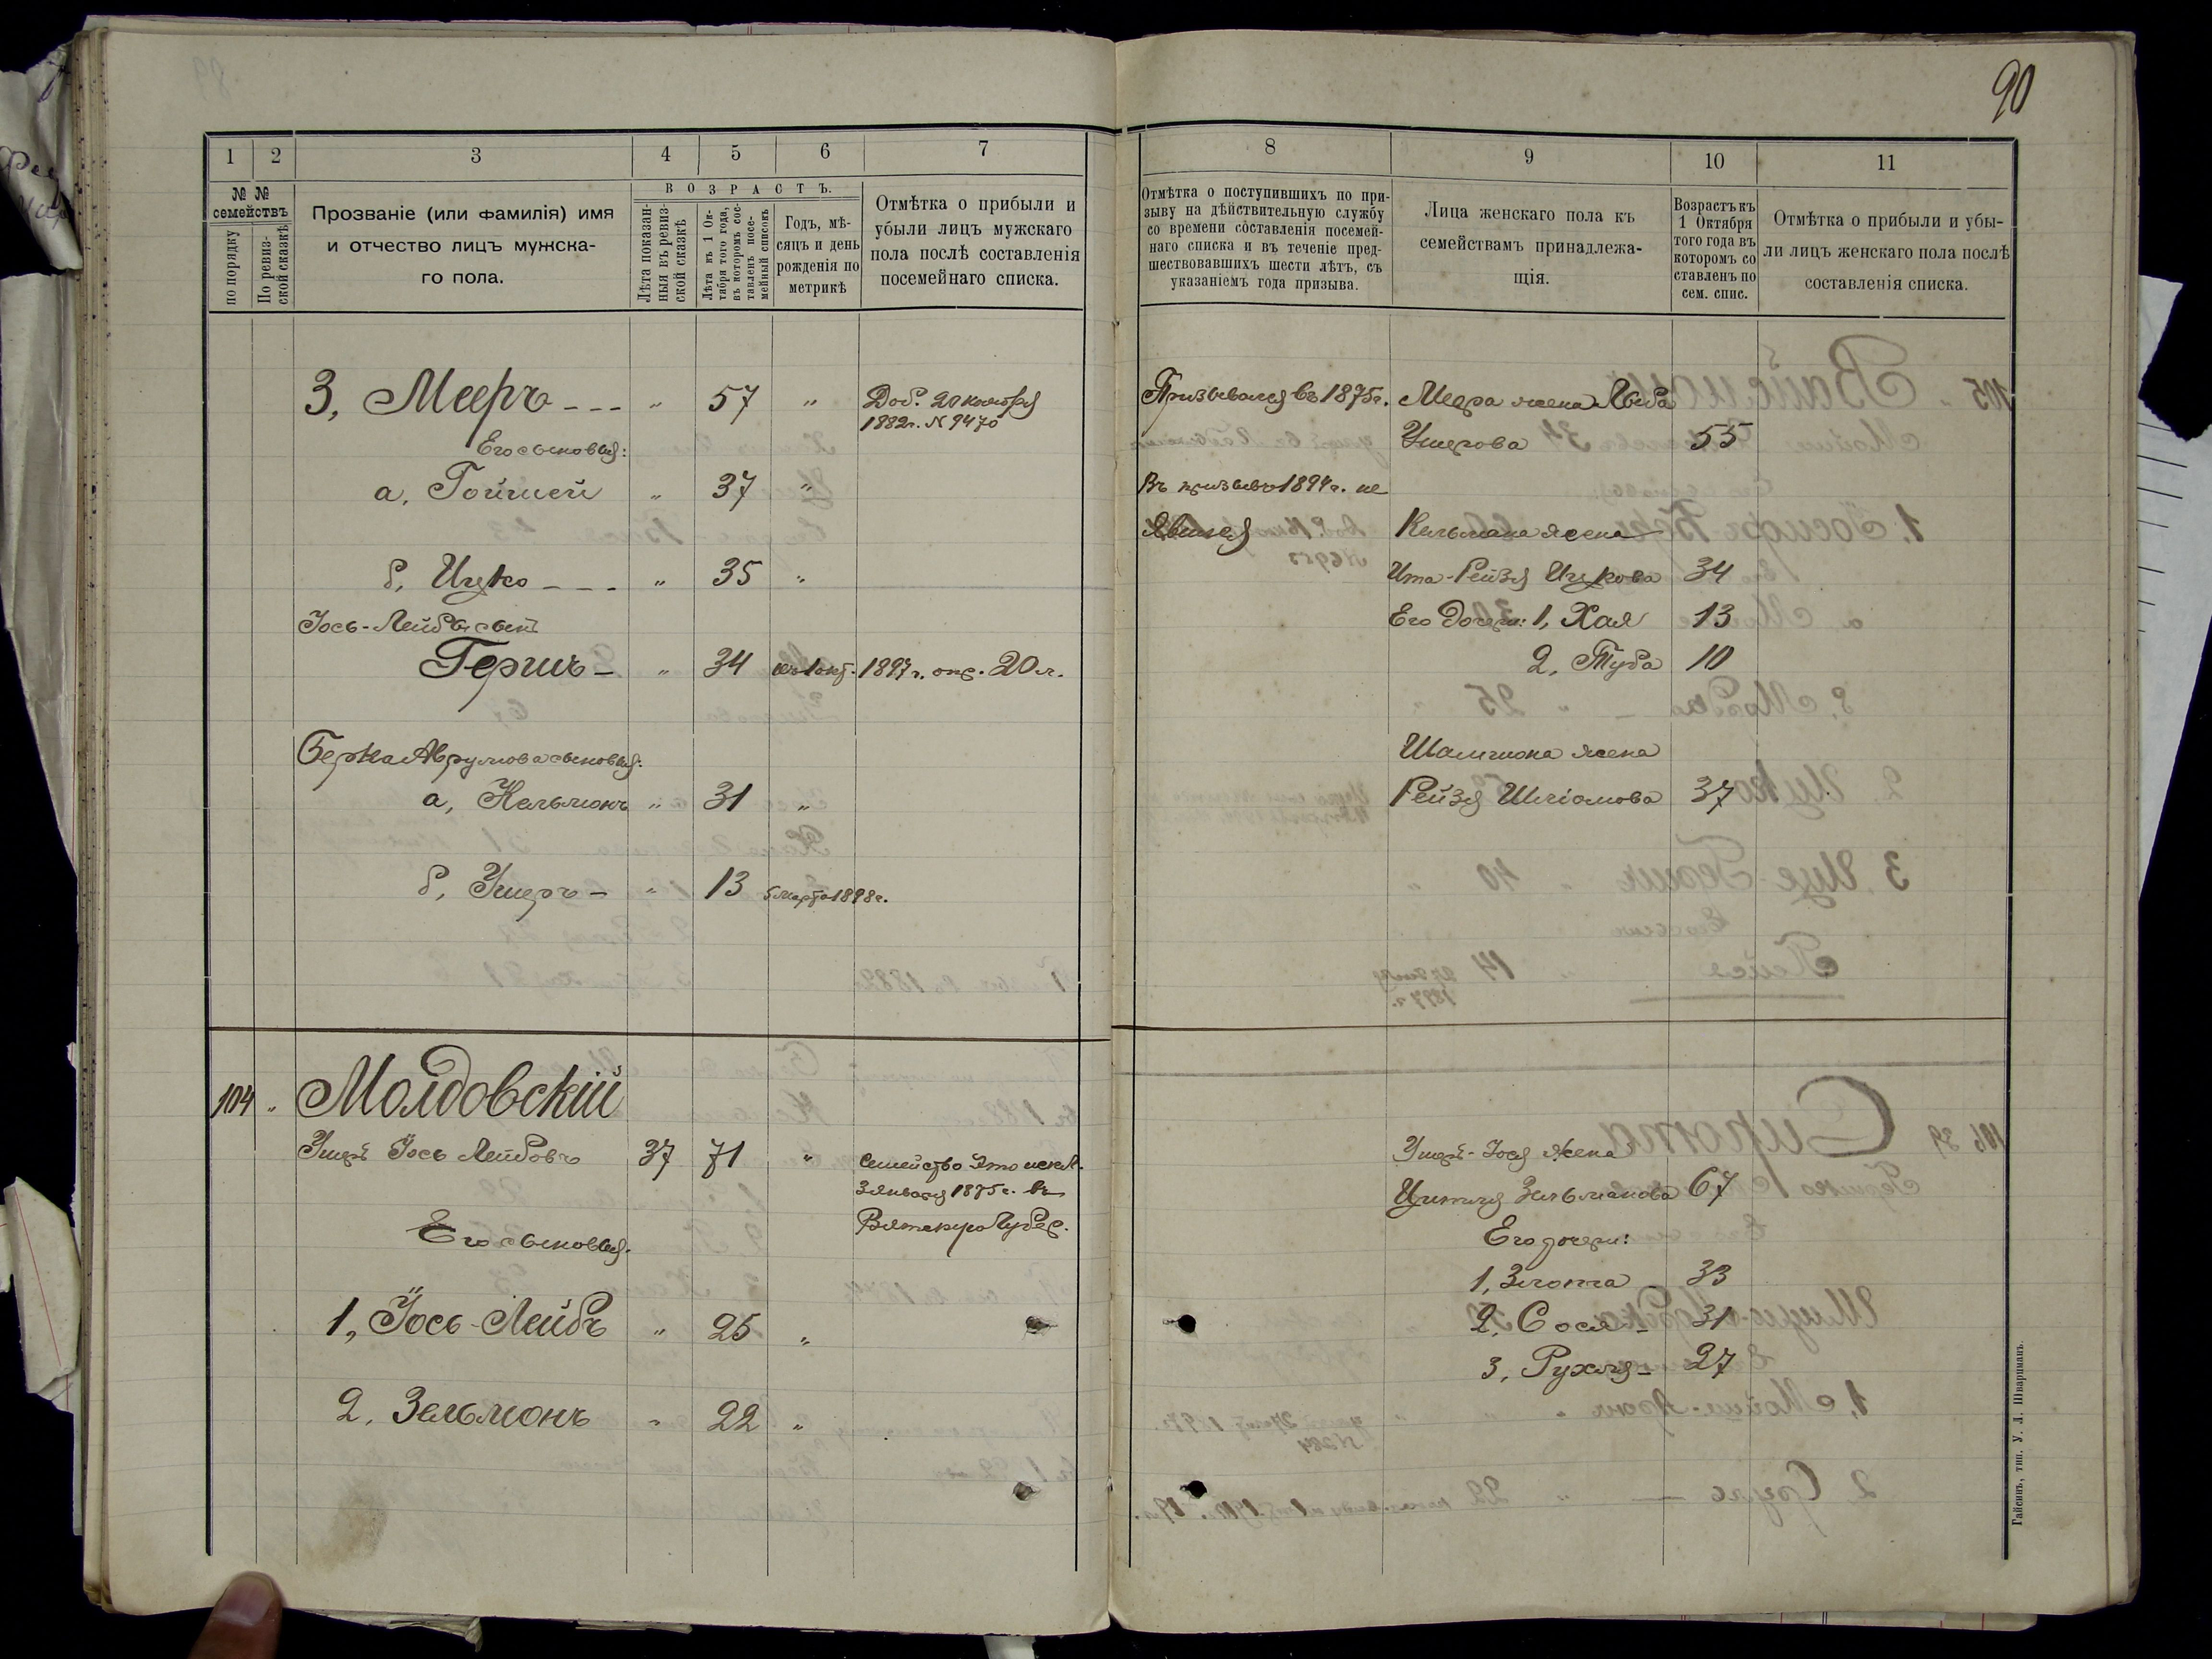 90
1 2 3 4 5 6 7
№ №
семействъ
по порядку
По ревиз-
ской сказкѣ
Прозваніе (или фамилія) имя
и отчество лицъ мужска-
го пола.
ВОЗРАСТЪ.
Лѣта показан-
ныя въ ревиз-
ской сказкѣ
Лѣта къ 1 Ок-
тября того года,
въ которомъ сос-
тавленъ посе-
мейный списокъ
Годъ, мѣ-
сяцъ и день
рожденія по
метрикѣ
Отмѣтка о прибыли и
убыли лицъ мужскаго
пола послѣ составленія
посемейнаго списка.
3, Мееръ - - - " 57 " Доб. 20 ноября
1882г. N 9470
Его сыновья:
а, Гойшей " 37 "
б, Ицко - - - " 35 "
Іось-Лейбы сынъ
Гершъ - " 34 къ 1 окт. 1897 г. опр. 20 л.
Берка Аврумова сыновья:
а, Кельмонъ " 31 "
б, Ушеръ - " 13 5 марта 1898г.
104 " Молдовскій
Ушеръ Іось Лейбовъ 37 71 " Семейство это искл.
3 января 1875г. въ
Вятскую Губер.
Его сыновья:
1, Іось-Лейбъ " 25 "
2, Зельмонъ " 22 "
8 9 10 11
Отмѣтка о поступившихъ по при-
зыву на дѣйствительную службу
со времени составленія посемей-
наго списка и въ теченіе пред-
шествовавшихъ шести лѣтъ, съ
указаніемъ года призыва.
Лица женскаго пола къ
семействамъ принадлежа-
щія.
Возрастъ къ
1 Октября
того года въ
которомъ со
ставленъ по
сем. спис.
Отмѣтка о прибыли и убы-
ли лицъ женскаго пола послѣ
составленія списка.
Призывался въ 1875г. Меера жена Лыба
Ушерова 55
Въ призывъ 1894г. не
явился Кельмана жена
Ита-Рейзя Ицкова 34
Его дочери: 1, Хая 13
2, Туба 10
Шамшона жена
Рейзя Шліомова 37
Ушеръ-Іося жена
Ципля Зельманова 67
Его дочери:
1, Злота 33
2, Сося - 31
3, Рухля - 27
Гайсинъ, тип. У. Л. Шварцманъ.